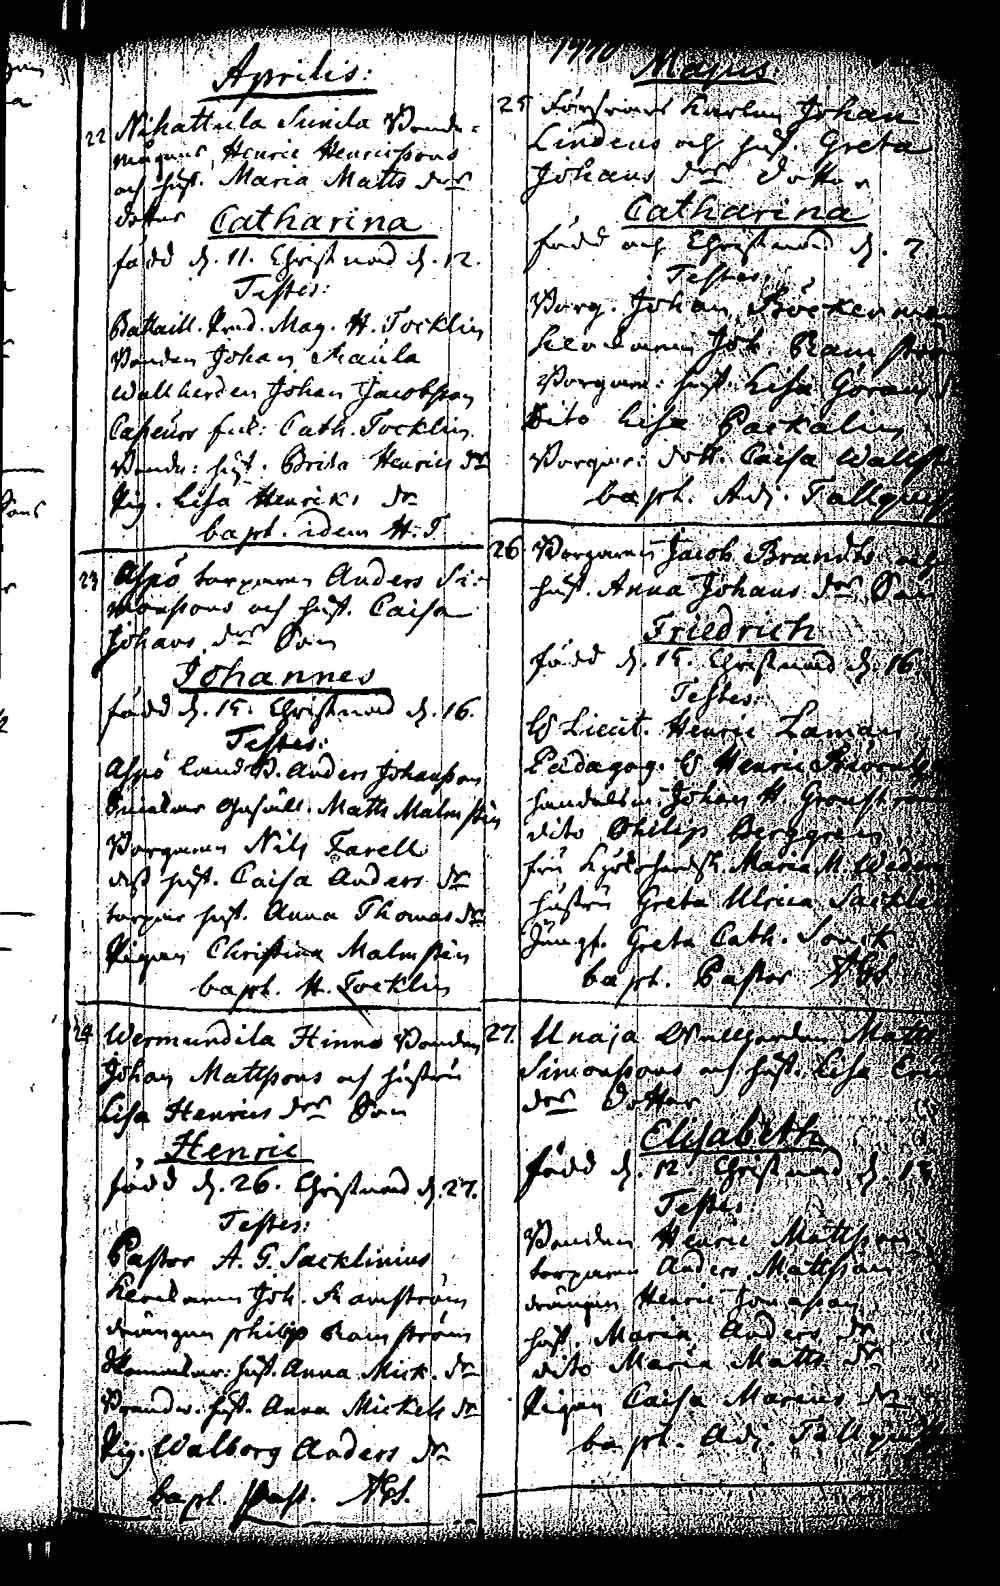 Aprilis:
22 Nihattula Sunila Bonde-
magens, Henric Henricssons
och hust. Maria Matts dr
dotter Catharina
född d. 11. Christnad d. 12.
Testes:
Bataill. Pred. Mag. H. Tocklin
Bonden Johan Skaula
Wallherden Johan Jacobsson
Casseurs frus: Cath. Tocklin.
Bonde: hust. Brita Henrics dr
Pig. Lisa Henriks dr
bapt. idem H. T.
23 Aspö torparen Anders Si-
monssons och hust. Caisa
Johans dr Son
Johannes
född d. 15. Christnad d. 16.
Testes:
Aspö Landb. Anders Johansson
Gesäll. Matts Malmstén
Borgaren Nils Farell
dess hust. Caisa Anders dr
torpar hust. Anna Thomas dr
Pigan Christina Malmstén
bapt. H. Tocklin
24 Wermundila Hinno Bonden
Johan Matssons och hustru
Lisa Henrics dr Son
Henric
född d. 26. Christnad d. 27.
Testes:
Pastor A. G. Sacklinius
Karlmannen Joh. Ramström
drängen philip Ramström
hust. Anna Mick. dr
Bondw. hust. Anna Mickels dr
Pig. Walborg Anders dr
bapt. Past. AGS.
1770
Majus:
25 Karlen Johan
Lindens och hust. Greta
Johans dr dotter
Catharina
född och Christnad d. 7
Testes:
Borg. Johan Böckerman
Johan Ramström
Borgare: hust. Lisa Göran
Dito Lisa Packalin
Borgar: dott. Caisa Wallst
bapt. Adj. Tallqvist
26 Borgaren Jacob Brandts och
hust. Anna Johans dr Son
Friedrich
född d. 15. Christnad d. 16.
Testes:
H Lieut. Henric Laman
Pædagog. H Henric
handelsm: Johan H Gronström
dito Philip Berggren
fru Maria M.
hustru Greta Ulrica Sacklin
Jungf. Greta Cath. Sonck
bapt. Pastor AGS.
27. Unaja Wallherden Matts
Simonssons och hust. Lisa Eric
dr Dotter
Elisabeth
född d. 12 Christnad d. 13
Testes:
Bonden Henric Mattsson
torparen Anders Mattsson
drängen Henric Jonasson
hust. Maria Anders dr
dito Maria Matts dr
Pigan Caisa Marcus dr
bapt. Adj. Tallqvist